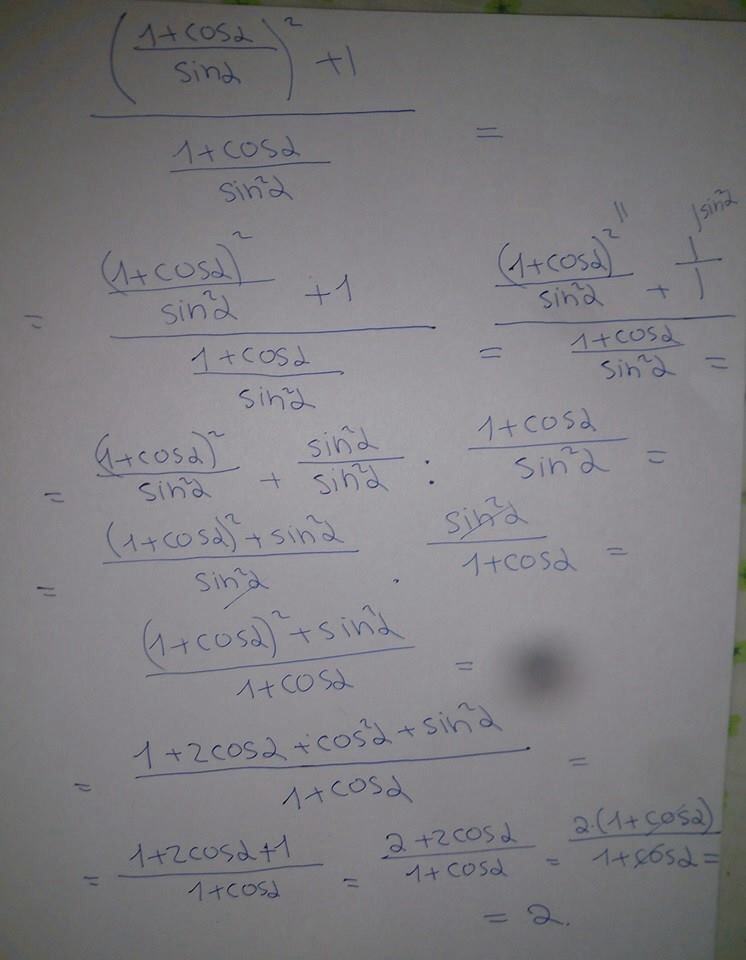 ((1+cosα)/(sinα))² +1
/ (1+cosα)/(sin²α) =
= ((1+cosα)²/(sin²α) +1) / ((1+cosα)/(sin²α)) = ((1+cosα)²/(sin²α) + 1/1 |sin²α) / ((1+cosα)/(sin²α)) =
= (1+cosα)²/(sin²α) + sin²α/sin²α : (1+cosα)/(sin²α) =
= ((1+cosα)²+sin²α)/(sin²α) · (sin²α)/(1+cosα) =
((1+cosα)²+sin²α)/(1+cosα) =
= (1+2cosα+cos²α+sin²α)/(1+cosα) =
= (1+2cosα+1)/(1+cosα) = (2+2cosα)/(1+cosα) = (2·(1+cosα))/(1+cosα) =
= 2.